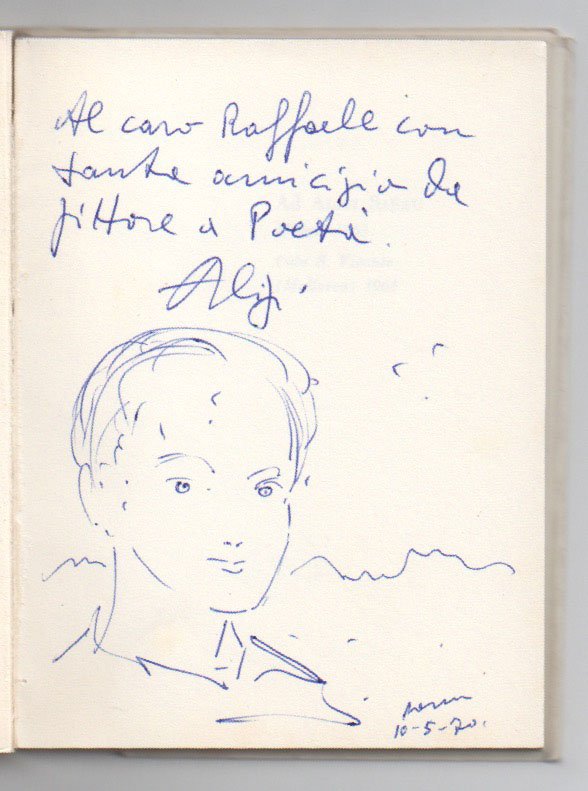 Al caro Raffaele con
tanta amicizia da
pittore a Poeta.
Roma
10-5-70.